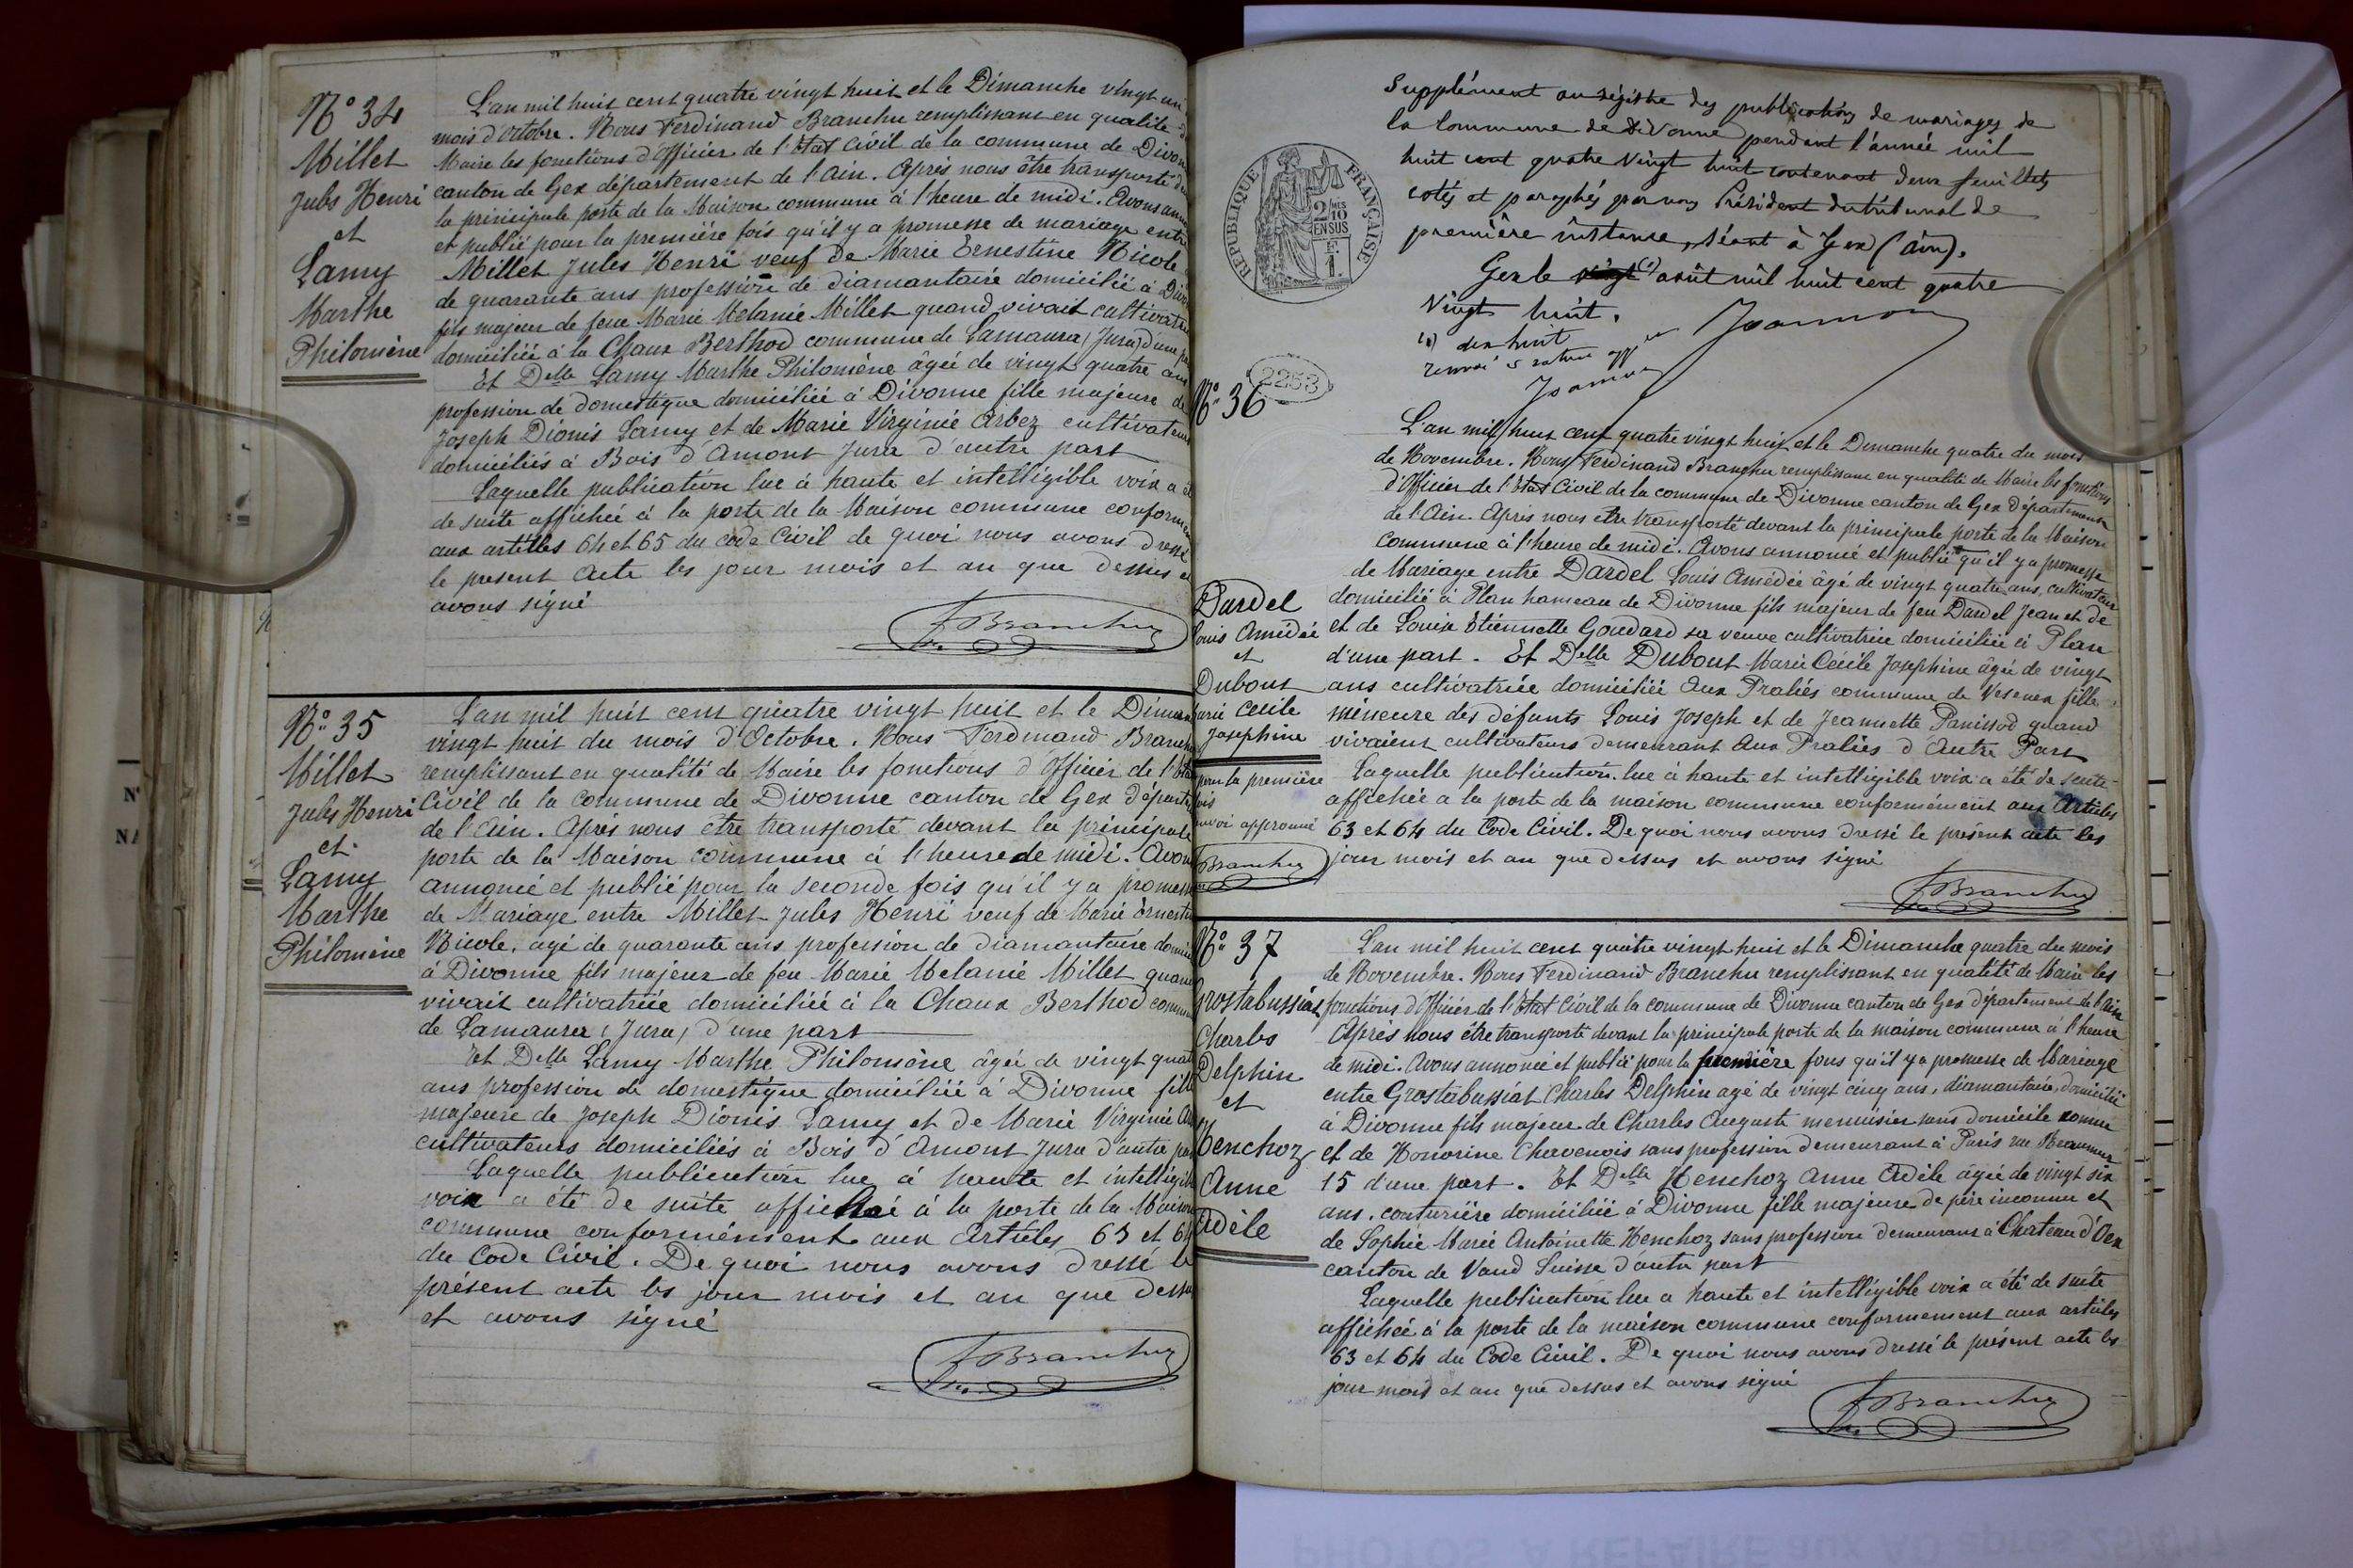 N° 34
Millet
Jules Henri
et
Lamy
Marthe
Philomène
L'an mil huit cent quatre vingt huit et le Dimanche vingt un
mois d'octobre. Nous Ferdinand Branchu remplissant en qualité
Maire les fonctions d'officier de l'Etat Civil de la commune de Divon
canton de Gex département de l'Ain. Après nous être transporté
la principale porte de la Maison commune à l'heure de midi. Avons
et publié pour la première fois qu'il y a promesse de mariage entre
Millet Jules Henri veuf de Marie Ernestine Nicole
de quarante ans profession de diamantaire domicilié à Div
fils majeur de feue Marie Melanie Millet quand vivait cultivatri
domiciliée à la Chaux Berthod commune de Lamoura (Jura) d'une
Et Delle Lamy Marthe Philomène âgée de vingt quatre ans
profession de domestique domiciliée à Divonne fille majeure de
Joseph Dionis Lamy et de Marie Virginie Arbez cultivateurs
domiciliés à Bois d'Amont Jura d'autre part
Laquelle publication lue à haute et intelligible voix a
de suite affichée à la porte de la Maison commune conformém
aux articles 64 et 65 du code Civil de quoi nous avons dressé
le present acte les jour mois et an que dessus et
avons signé
F Branchu
N° 35
Millet
Jules Henri
et
Lamy
Marthe
Philomène
L'an mil huit cent quatre vingt huit et le Diman
vingt huit du mois d'Octobre. Nous Ferdinand Branchu
remplissant en qualité de Maire les fonctions d'Officier de l'Eta
Civil de la commune de Divonne canton de Gex départe
de l'Ain. Après nous être transporté devant la principale
porte de la Maison commune à l'heure de midi. Avons
annoncé et publié pour la seconde fois qu'il y a promesse
de Mariage entre Millet Jules Henri veuf de Marie Ernestin
Nicole, agé de quarante ans profession de diamantaire domici
à Divonne fils majeur de feu Marie Melanie Millet quand
vivait cultivatrice domiciliée à la Chaux Berthod commu
de Lamoura (Jura) d'une part
Et Delle Lamy Marthe Philomène âgée de vingt quat
ans profession de domestique domiciliée à Divonne fille
majeure de Joseph Dionis Lamy et de Marie Virginie
cultivateurs domiciliés à Bois d'Amont Jura d'autre pa
Laquelle publication lue à haute et intelligib
voix a été de suite affichée à la porte de la Maison
commune conformément aux Articles 63 et 64
du Code Civil. De quoi nous avons dressé le
présent acte les jour mois et an que dessus
et avons signé
F Branchu
Supplément au régistre des publications de mariages de
la Commune de Divonne pendant l'année mil
huit cent quatre vingt huit contenant deux feuillets
cotés et paraphés par nous Président du tribunal de
première instance, séant à Gex (Ain).
Gex le vingt (1) août mil huit cent quatre
vingt huit.
(1) dix huit
renvoi & rature
RÉPUBLIQUE FRANÇAISE
2/10
EN SUS
2253
N° 36
Dardel
Louis Amédée
et
Dubout
Marie Cécile
Josephine
pour la première
fois
renvoi approuvé
Branchu
L'an mil huit cent quatre vingt huit et le Dimanche quatre du mois
de Novembre. Nous Ferdinand Branchu remplissant en qualité de Maire les fonctions
d'Officier de l'Etat Civil de la commune de Divonne canton de Gex Département
de l'Ain. Après nous etre transporté devant la principale porte de la Maison
commune à l'heure de midi. Avons annoncé et publié qu'il y a promesse
de Mariage entre Dardel Louis Amédée âgé de vingt quatre ans, cultivateur
domicilié à Plan hameau de Divonne fils majeur de feu Dardel Jean et de
et de Louise Etiennette Goudard sa veuve cultivatrice domiciliée à Plan
d'une part. Et Delle Dubout Marie Cécile Josephine âgée de vingt
ans cultivatrice domiciliée Aux Pralies commune de Vesenex fille
mineure des défunts Louis Joseph et de Jeannette Panissod quand
vivaient cultivateurs demeurant Aux Pralies d'Autre Part
Laquelle publication lue à haute et intelligible voix a été de suite
affichée a la porte de la maison commune conformément aux Articles
63 et 64 du Code Civil. De quoi nous avons dressé le présent acte les
jour mois et an que dessus et avons signé
F Branchu
N° 37
Grostabussiat
Charles
Delphin
et
Henchoz
Anne
Adèle
L'an mil huit cent quatre vingt huit et le Dimanche quatre du mois
de Novembre. Nous Ferdinand Branchu remplissant en qualité de Maire les
fonctions d'Officier de l'Etat Civil de la commune de Divonne canton de Gex département de l'Ain
Après nous être transporté devant la principale porte de la maison commune à l'heure
de midi. Avons annoncé et publié pour la première fois qu'il y a promesse de Mariage
entre Grostabussiat Charles Delphin agé de vingt cinq ans, diamantaire, domicilié
à Divonne fils majeur de Charles Auguste menuisier sans domicile connu
et de Honorine Chavenois sans profession demeurant à Paris rue
15 d'une part. Et Delle Henchoz Anne Adèle âgée de vingt six
ans, couturière domiciliée à Divonne fille majeure de père inconnu et
de Sophie Marie Antoinette Henchoz sans profession demeurant à Chateau d'Oex
canton de Vaud Suisse d'autre part
Laquelle publication lue a haute et intelligible voix a été de suite
affichée à la porte de la maison commune conformement aux articles
63 et 64 du Code Civil. De quoi nous avons dressé le présent acte les
jour mois et an que dessus et avons signé
F Branchu